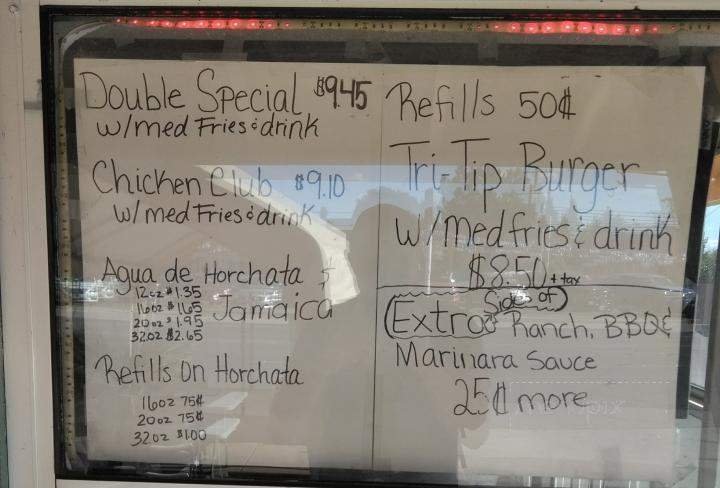 Double Special $9.45
w/med Fries & drink
Chicken Club $9.10
w/med Fries & drink
Agua de Horchata &
Jamaica
12oz $1.35
16oz $1.65
20oz $1.95
32oz $2.65
Refills On Horchata
16oz 75¢
20oz 75¢
32oz $1.00
Refills 50¢
Tri-Tip Burger
w/med fries & drink
$8.50 + tax
Extra Sides of
Ranch, BBQ &
Marinara Sauce
25¢ more